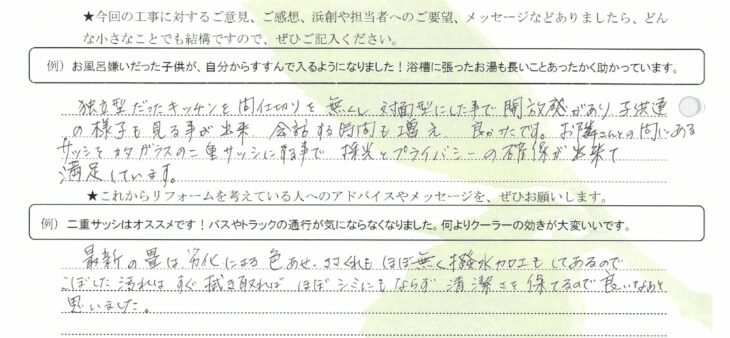 ★今回の工事に対するご意見、ご感想、浜創や担当者へのご要望、メッセージなどありましたら、どん
な小さなことでも結構ですので、ぜひご記入ください。
例）お風呂嫌いだった子供が、自分からすすんで入るようになりました！浴槽に張ったお湯も長いことあったかく助かっています。
独立型だったキッチンを間仕切りを無くし対面型にした事で開放感があり子供達
の様子も見る事が出来 会話する時間も増え 良かったです。お隣さんとの間にある
サッシをカタガラスの二重サッシにする事で 採光とプライバシーの確保が出来て
満足しています。
★これからリフォームを考えている人へのアドバイスやメッセージを、ぜひお願いします。
例）二重サッシはオススメです！バスやトラックの通行が気にならなくなりました。何よりクーラーの効きが大変いいです。
最新の畳は劣化による色あせ、ささくれもほぼ無く撥水加工もしてあるので
こぼした汚れはすぐ拭き取れば ほぼシミにもならず 清潔さを保てるので良いなあと
思いました。